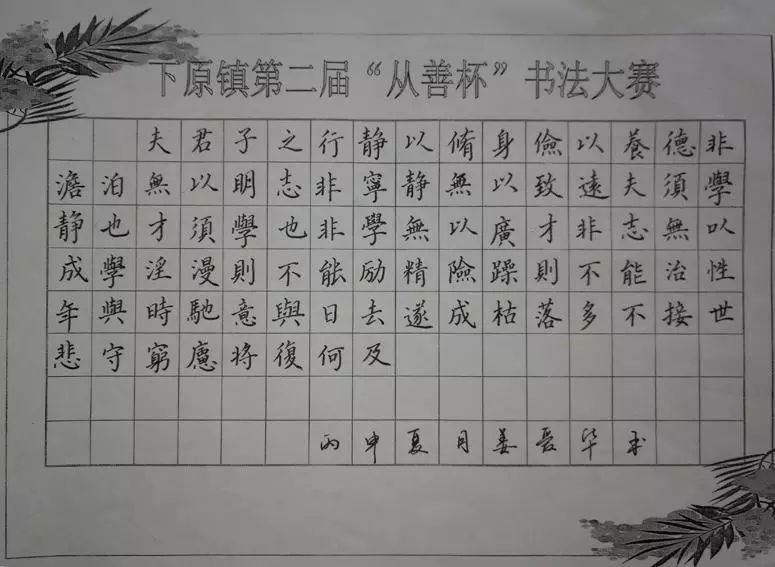 下原镇第二届“从善杯”书法大赛
夫君子之行静以脩身儉以養德非
澹泊無以明志非寧静無以致遠夫須學
静也才須學也非學無以廣才非志無以
成學淫漫則不能励精險躁則不能治性
年與時馳意與日去遂成枯落多不接世
悲守窮廬将復何及
丙申夏月姜